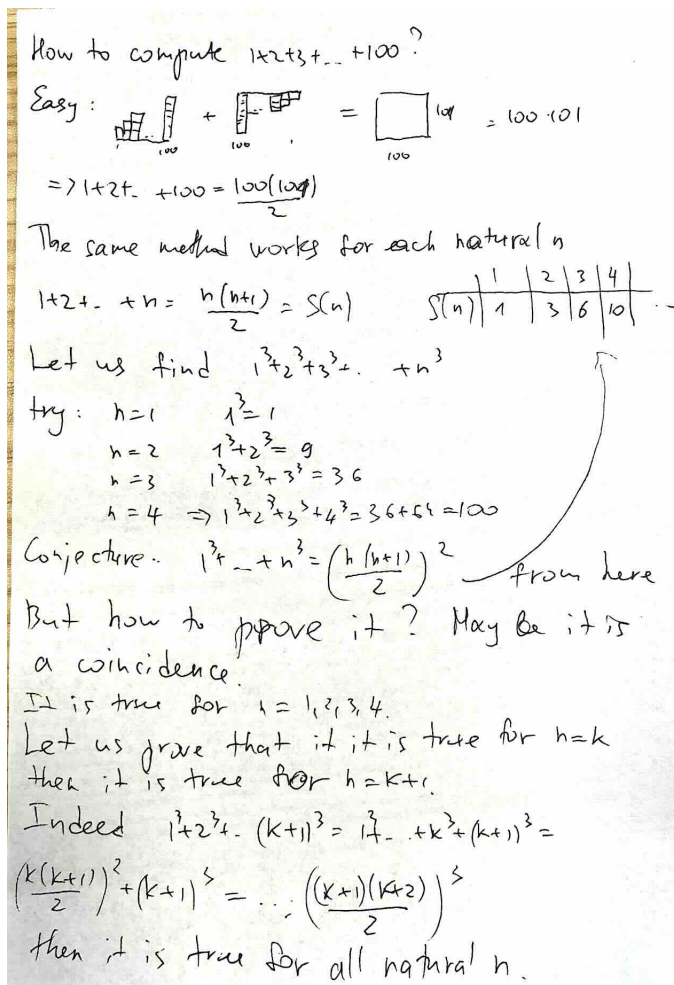 How to compute 1+2+3+...+100?
Easy: + = 101 = 100·101
100 100 100
=> 1+2+... +100 = 100(101)/2
The same method works for each natural n
1+2+... +n = n(n+1)/2 = S(n)
1 2 3 4
S(n) 1 3 6 10 ...
Let us find 1³+2³+3³+... +n³
try: n=1 1³=1
n=2 1³+2³=9
n=3 1³+2³+3³=36
n=4 => 1³+2³+3³+4³=36+64=100
Conjecture.. 1³+...+n³=(n(n+1)/2)² from here
But how to prove it? May be it is
a coincidence.
It is true for n=1,2,3,4.
Let us prove that if it is true for n=k
then it is true for n=k+1.
Indeed 1³+2³+... (k+1)³ = 1³+...+k³+(k+1)³ =
(k(k+1)/2)²+(k+1)³ = ... ((k+1)(k+2)/2)³
then it is true for all natural n.